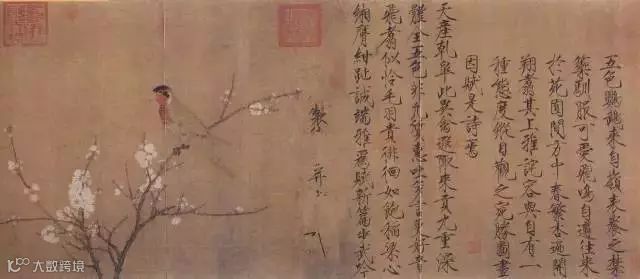 五色鸚鵡來自嶺表養之禁
籞馴服可愛飛鳴自適往來
於苑囿間方中春繁杏遍開
翔翥其上雅詫容與自有一
種態度縱目觀之宛勝圖畫
因賦是詩焉
天產乾皋此異禽遐陬來貢九重深
體全五色非凡質惠吐多言更好音
飛翥似憐毛羽貴徘徊如飽稻粱心
緗膺紺趾誠端雅為賦新篇步武吟
製 并
大数跨境